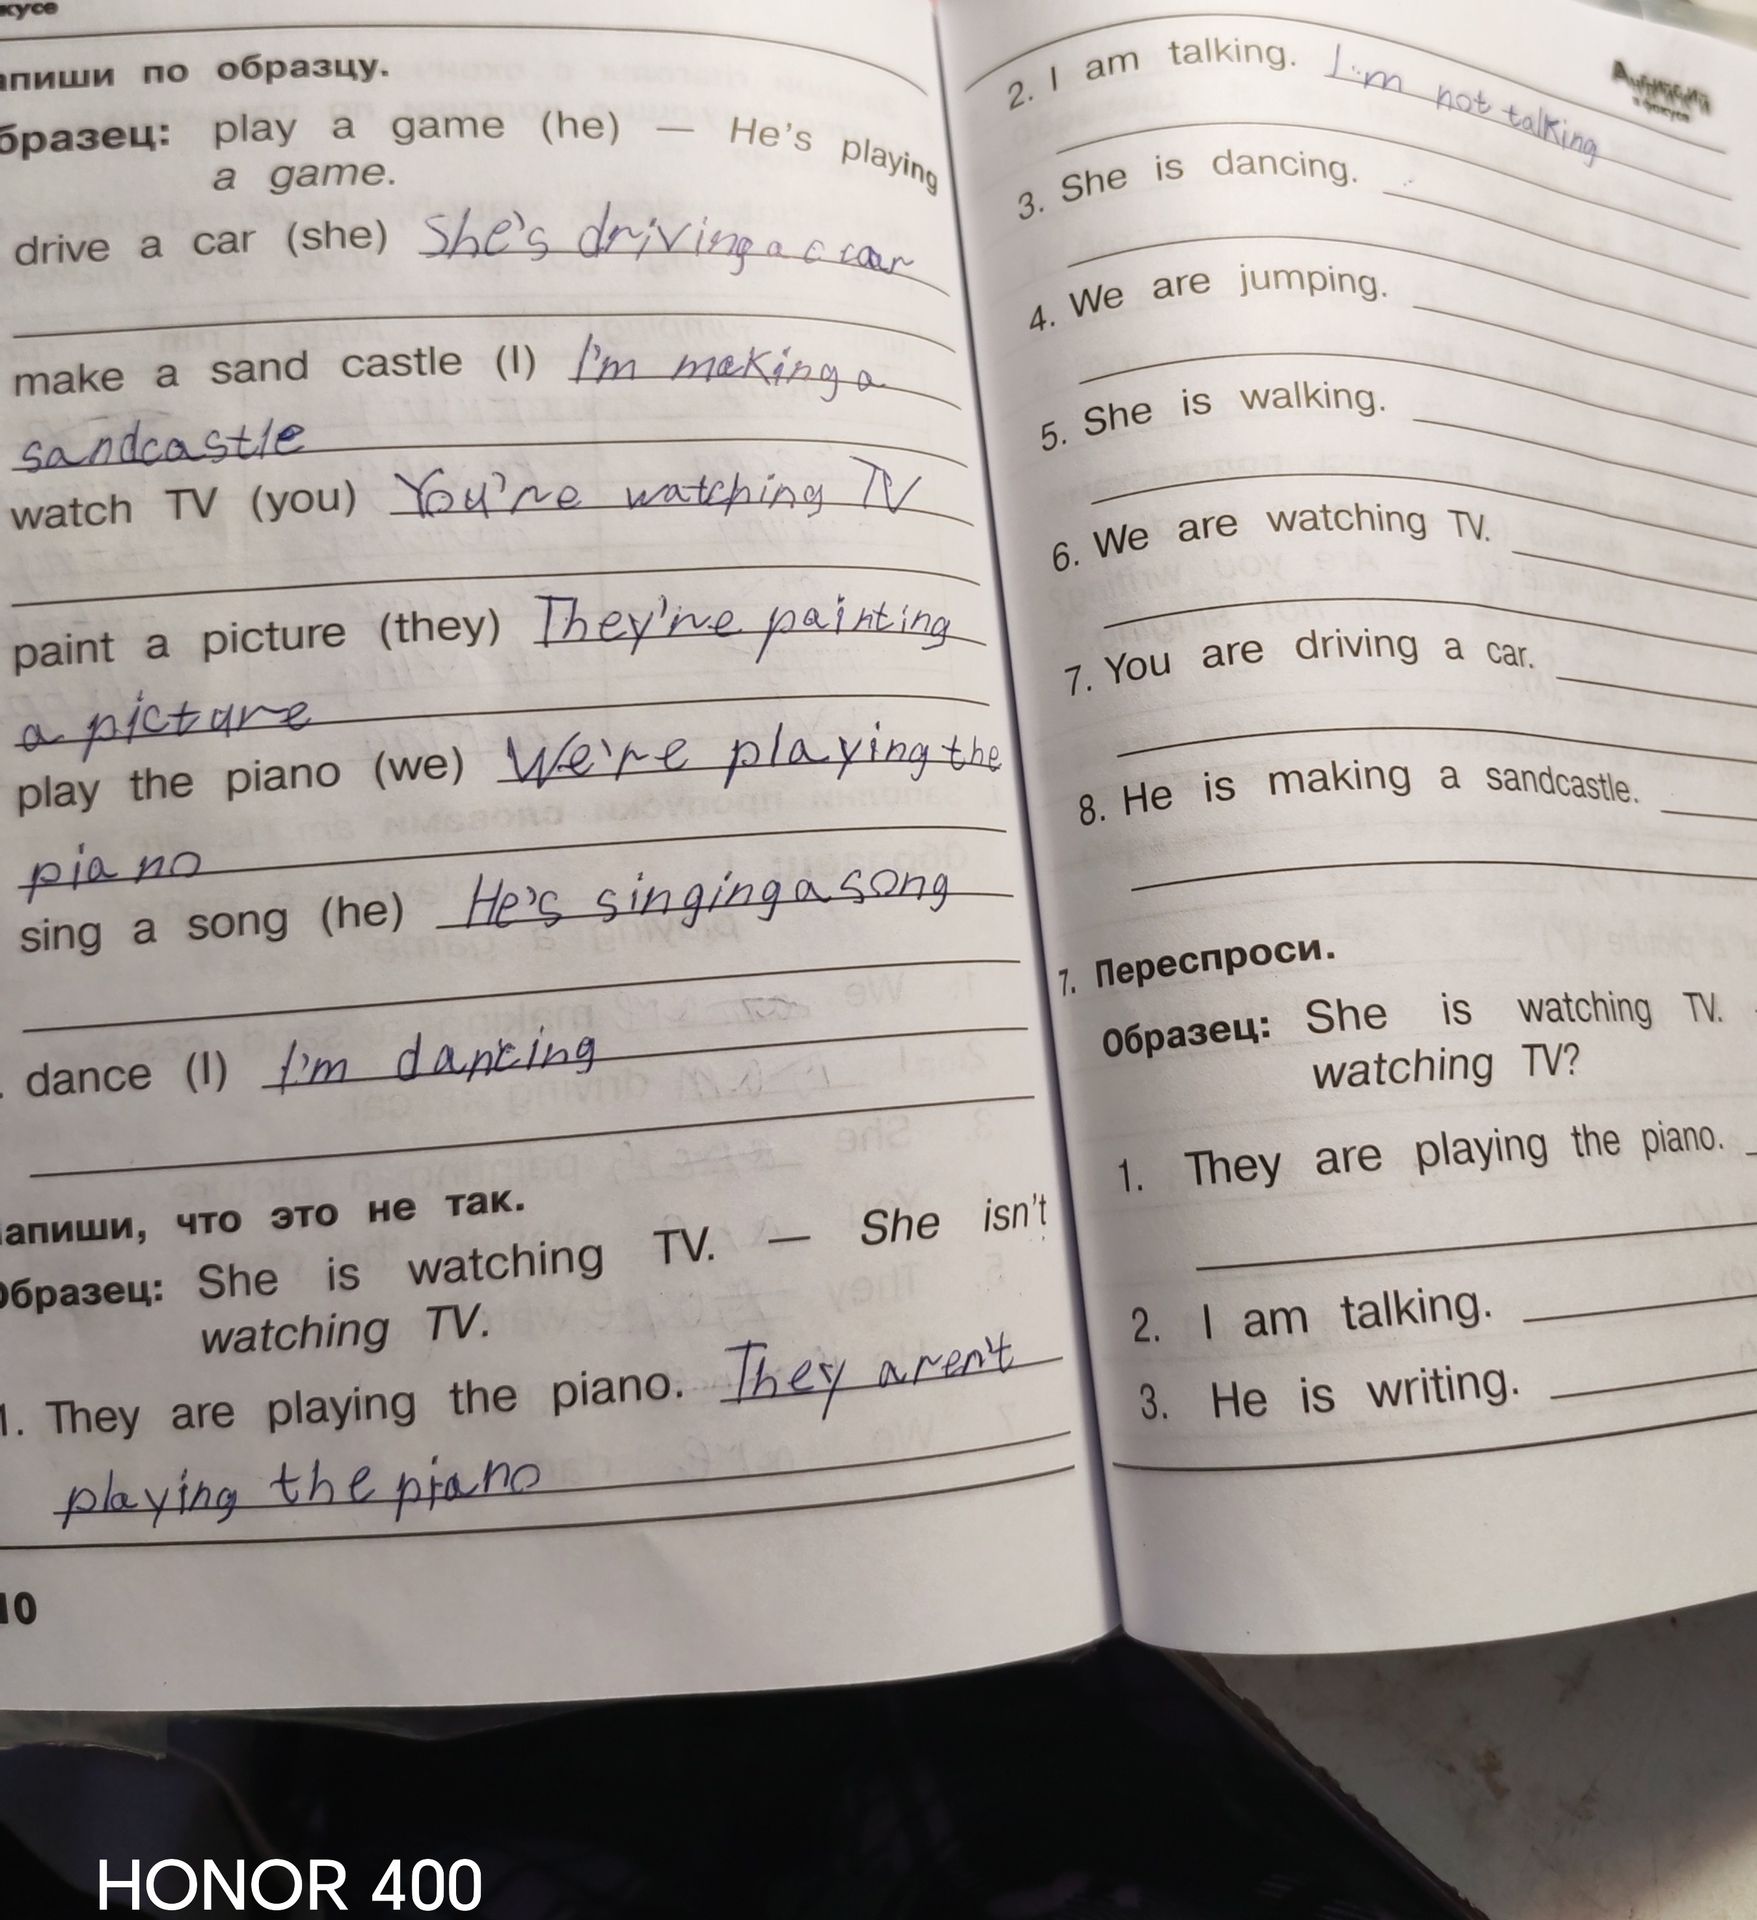 кусе
апиши по образцу.
бразец: play a game (he) — He's playing
a game.
drive a car (she) She's driving a c car
make a sand castle (I) I'm making a
sandcastle
watch TV (you) You're watching TV
paint a picture (they) They're painting
a picture
play the piano (we) We're playing the
piano
sing a song (he) He's singing a song
. dance (I) I'm dancing
апиши, что это не так.
Образец: She is watching TV. — She isn't
watching TV.
1. They are playing the piano. They aren't
playing the piano
10
2. I am talking. I'm not talking
3. She is dancing.
4. We are jumping.
5. She is walking.
6. We are watching TV.
7. You are driving a car.
8. He is making a sandcastle.
7. Переспроси.
Образец: She is watching TV.
watching TV?
1. They are playing the piano.
2. I am talking.
3. He is writing.
HONOR 400